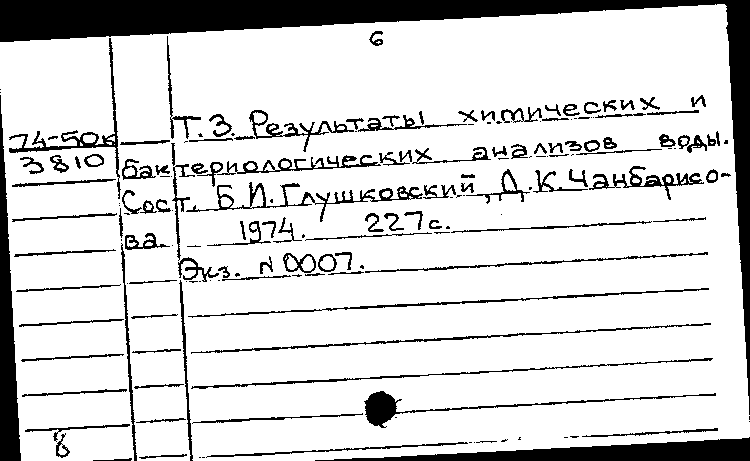 6
74-50к Т.3. Результаты химических и
3810 бактериологических анализов воды.
Сост. Б.И.Глушковский, Д.К.Чанбарисо-
ва. 1974. 227с.
Экз. N0007.
8